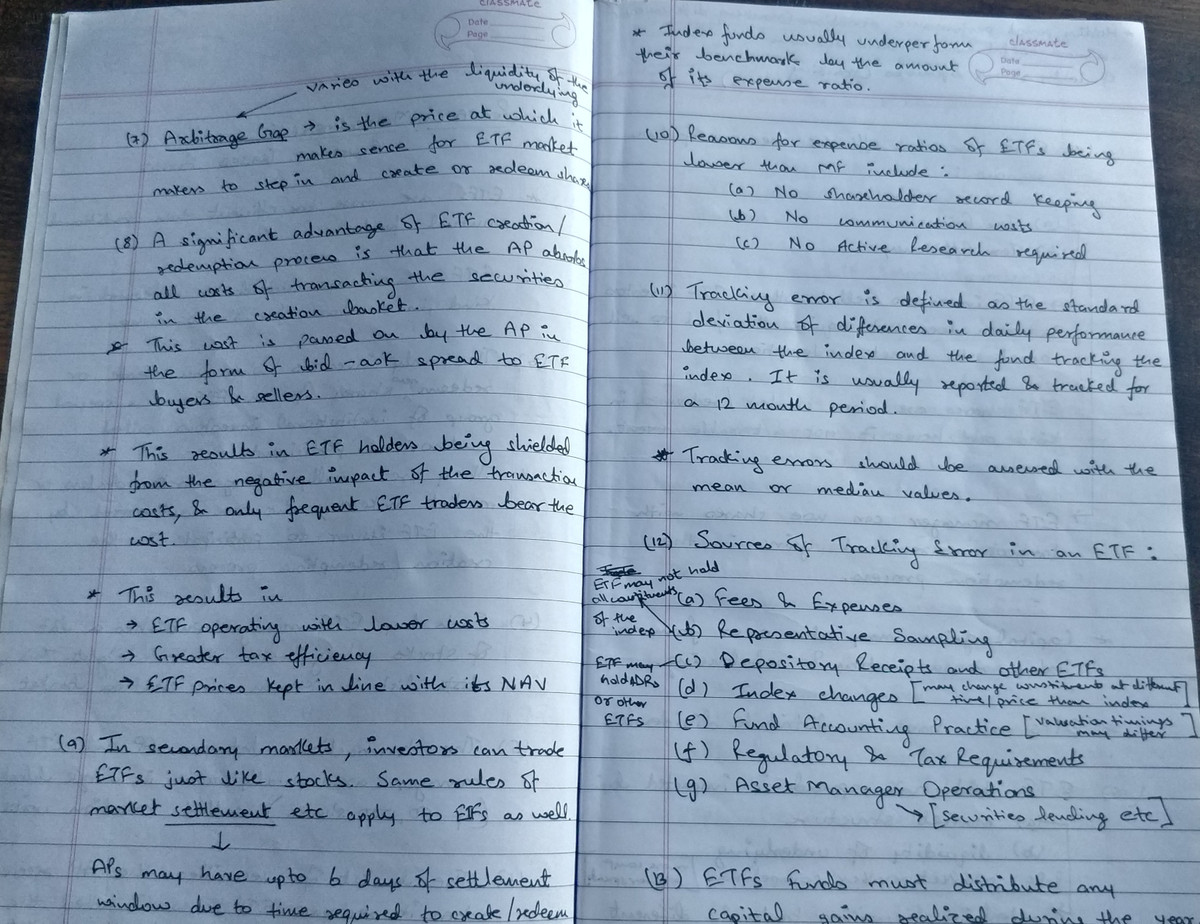 CLASSMATE
Date
Page
varies with the liquidity of the
underlying
(7) Arbitrage Gap → is the price at which it
makes sence for ETF market
makers to step in and create or redeem shares
(8) A significant advantage of ETF creation/
redemption process is that the AP absorbs
all costs of transacting the securities
in the creation basket.
* This cost is passed on by the AP in
the form of bid-ask spread to ETF
buyers & sellers.
* This results in ETF holders being shielded
from the negative impact of the transaction
costs, & only frequent ETF traders bear the
cost.
* This results in
→ ETF operating with lower costs
→ Greater tax efficiency
→ ETF prices kept in line with its NAV
(9) In secondary markets, investors can trade
ETFs just like stocks. Same rules of
market settlement etc apply to ETFs as well.
↓
APs may have upto 6 days of settlement
window due to time required to create/redeem
classmate
Date
Page
* Index funds usually underperform
their benchmark by the amount
of its expense ratio.
(10) Reasons for expense ratios of ETFs being
lower than MF include:
(a) No shareholder record keeping
(b) No communication costs
(c) No Active Research required
(11) Tracking error is defined as the standard
deviation of differences in daily performance
between the index and the fund tracking the
index. It is usually reported & tracked for
a 12 month period.
* Tracking errors should be assessed with the
mean or median values.
(12) Sources of Tracking Error in an ETF:
(a) Fees & Expenses
ETF may not hold
all constituents
of the
index
(b) Representative Sampling
ETF may
hold ADRs
or other
ETFs
(c) Depository Receipts and other ETFs
(d) Index changes [may change constituents at different
time/price than index]
(e) Fund Accounting Practice [valuation timings
may differ]
(f) Regulatory & Tax Requirements
(g) Asset Manager Operations
→ [securities lending etc]
(13) ETFs funds must distribute any
capital gains realized during the year